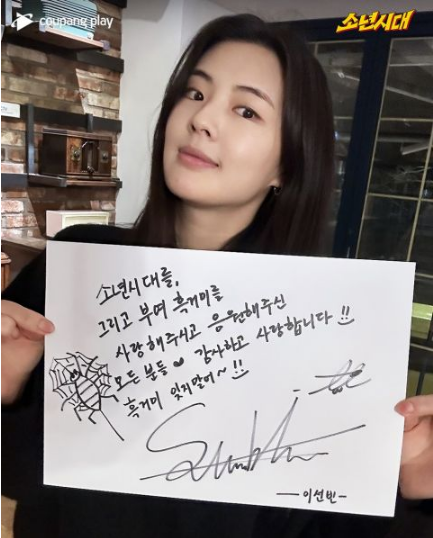 coupang play
소년시대
소년시대를,
그리고 부여 흑거미를
사랑해주시고 응원해주신
모든 분들 ♥ 감사하고 사랑합니다!!
흑거미 잊지말어~!!
이선빈-